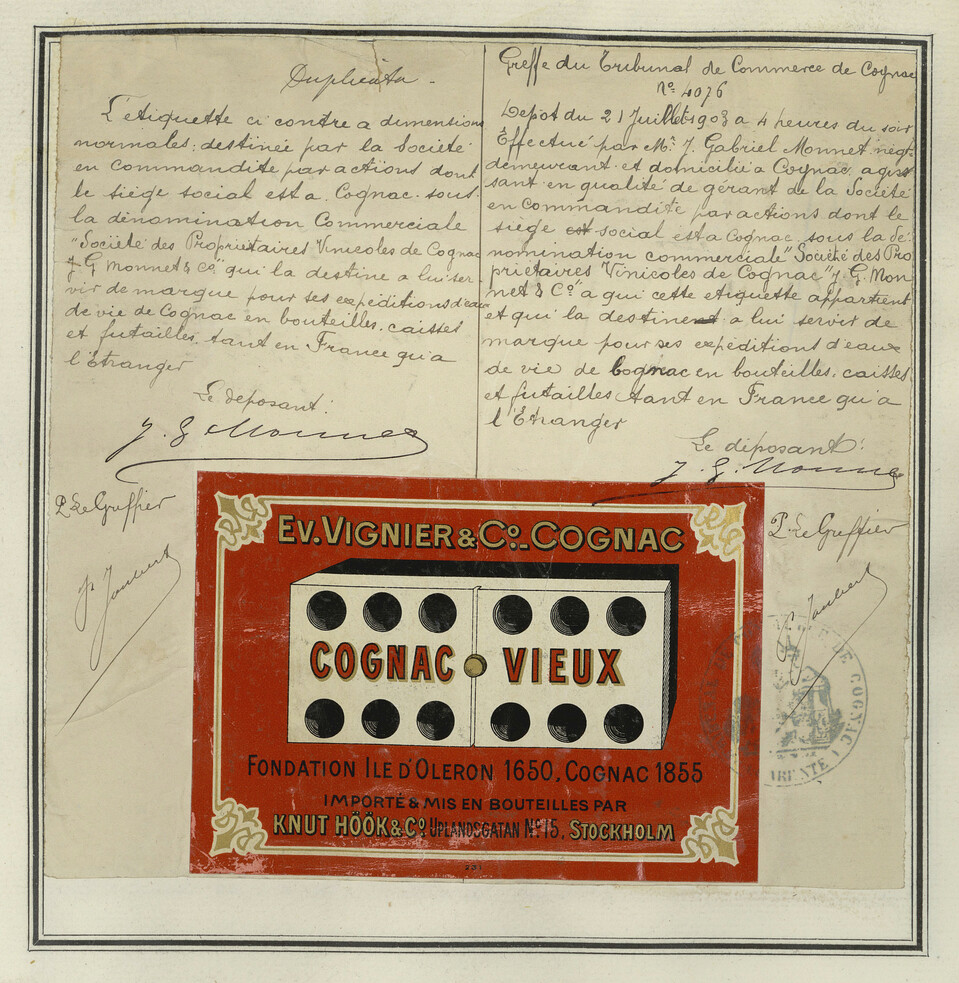 Duplicata -
L'étiquette ci contre a dimentions
normales; destinée par la Société
en commandite par actions dont
le siège social est a Cognac sous
la dénomination Commerciale
"Société des Propriétaires Vinicoles de Cognac
J G Monnet & Co" qui la destine a lui ser-
vir de marque pour ses expéditions d'eaux
de vie de Cognac en bouteilles, caisses
et futailles, tant en France qu'a
l'Etranger
Le déposant:
J. G Monnet
P. Le Greffier
Joubert
Greffe du Tribunal de Commerce de Cognac
No 4076
Dépôt du 21 Juillet 1903 a 4 heures du soir
Effectué par Mr. J. Gabriel Monnet, négt
demeurant et domicilié a Cognac, agis-
sant en qualité de gérant de la Société
en Commandite par actions dont le
siège est social est a Cognac sous la dé-
nomination commerciale "Société des Pro
priétaires Vinicoles de Cognac" J. G. Mon
net & Co" a qui cette etiquette appartient
et qui la destinent a lui servir de
marque pour ses expéditions d'eaux
de vie de Cognac en bouteilles, caisses
et futailles tant en France qu'a
l'Etranger
Le déposant:
J. G. Monnet
P. Le Greffier
Joubert
EV. VIGNIER & Co_COGNAC
COGNAC VIEUX
FONDATION ILE D'OLERON 1650, COGNAC 1855
IMPORTÉ & MIS EN BOUTEILLES PAR
KNUT HÖÖK & Co UPLANDSGATAN No 15, STOCKHOLM
DE COGNAC